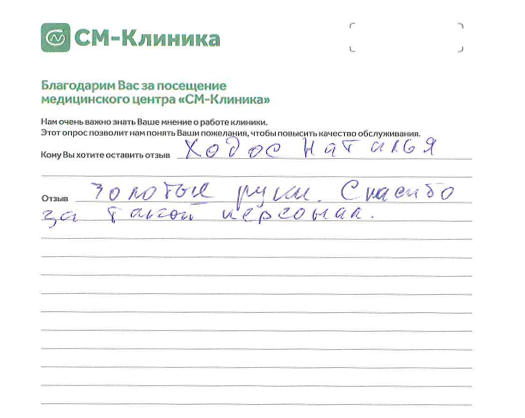 СМ-Клиника
Благодарим Вас за посещение
медицинского центра «СМ-Клиника»
Нам очень важно знать Ваше мнение о работе клиники.
Этот опрос позволит нам понять Ваши пожелания, чтобы повысить качество обслуживания.
Кому Вы хотите оставить отзыв Ходос Наталья
Отзыв Золотые руки. Спасибо
за такой персонал.